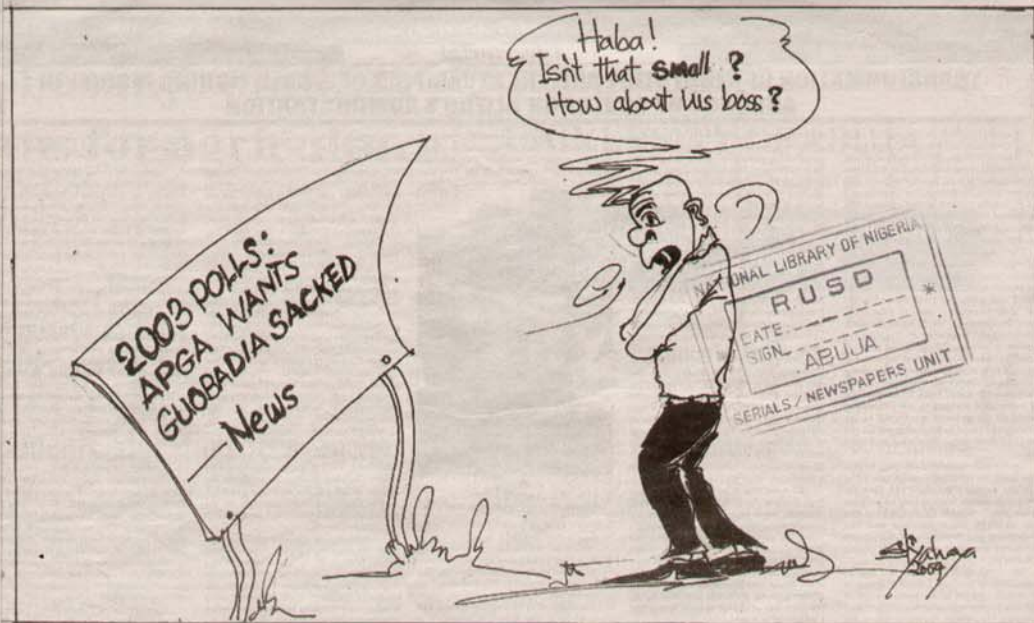 Haba!
Isn't that small?
How about his boss?
2003 POLLS:
APGA WANTS
GUOBADIA SACKED
News
NATIONAL LIBRARY OF NIGERIA
RUSD
DATE
SIGN.
ABUJA
SERIALS / NEWSPAPERS UNIT